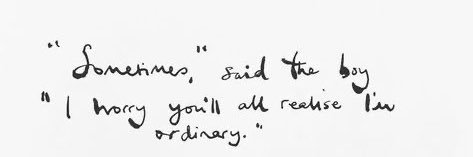 "Sometimes," said the boy
"I worry you'll all realise I'm
ordinary."